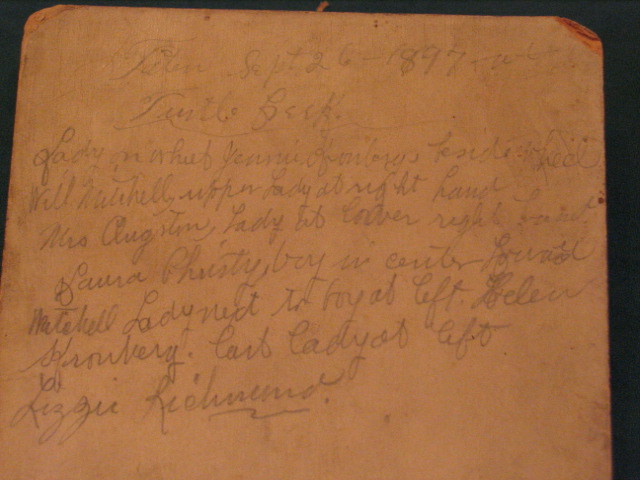 Taken Sept. 26 - 1897 - at
Turtle Creek.
Lady on wheel Jennie Kronberg, beside wheel
Will Mitchell, upper Lady at right hand
Mrs Augston, Lady at lower right hand
Laura Christy, boy in center Howard
Mitchell Lady next to boy at left. Helen
Kronberg. Last Lady at left
Lizzie Richmond.